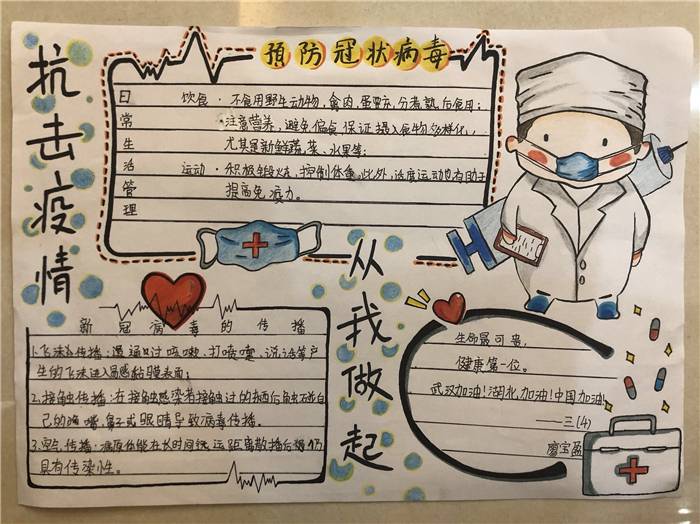 抗击疫情
预防冠状病毒
日常生活管理
饮食·不食用野生动物,禽肉、蛋要充分煮熟后食用;
注意营养,避免偏食保证摄入食物多样化,
尤其是新鲜蔬、菜、水果等;
运动·积极锻炼,控制体重,此外,适度运动也有助于
提高免疫力。
从我做起
新冠病毒的传播
1.飞沫传播:通过咳嗽、打喷嚏、说话等产
生的飞沫进入易感黏膜表面;
2.接触传播:在接触感染者接触过的东西后触碰自
己的嘴、鼻子或眼睛导致病毒传播。
3.空气传播:病原体能在长时间、远距离散播后
具有传染性。
生命最可贵,
健康第一位。
武汉加油!湖北,加油!中国加油!
——三(4)
廖宝盈